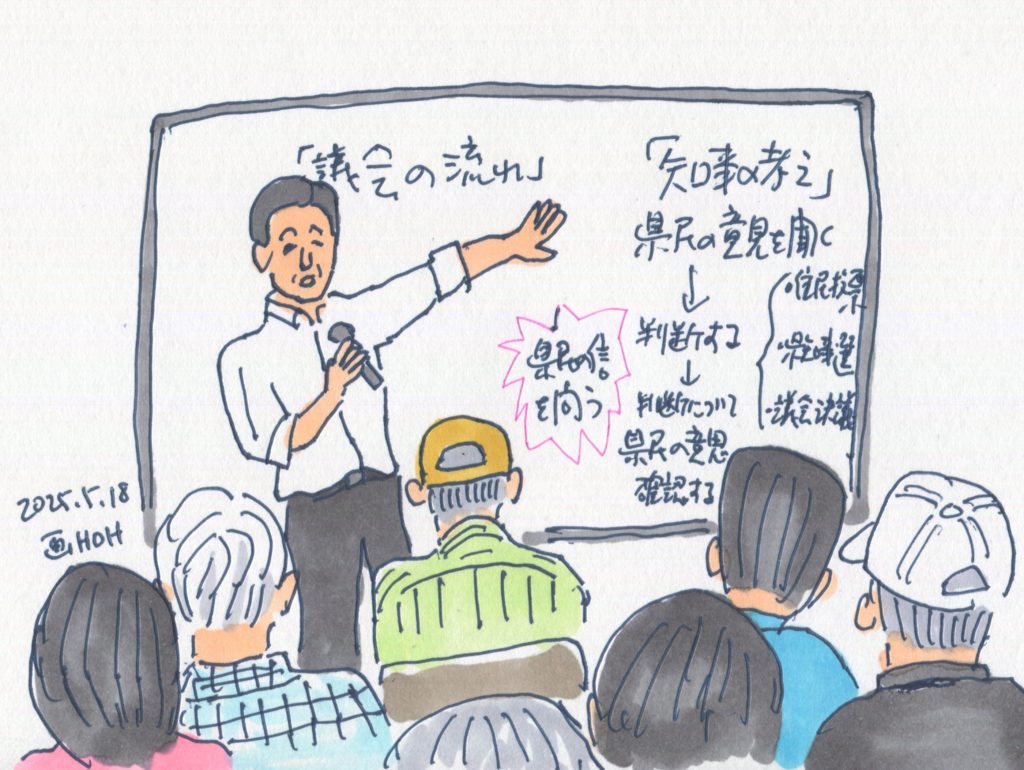 「議会の流れ」
「知事の考え」
県民の意見を聞く
↓
判断する
↓
判断について
県民の意思
確認する
・住民投票
・県知事選
・議会決議
県民の信
を問う
2025.5.18
画 HOH